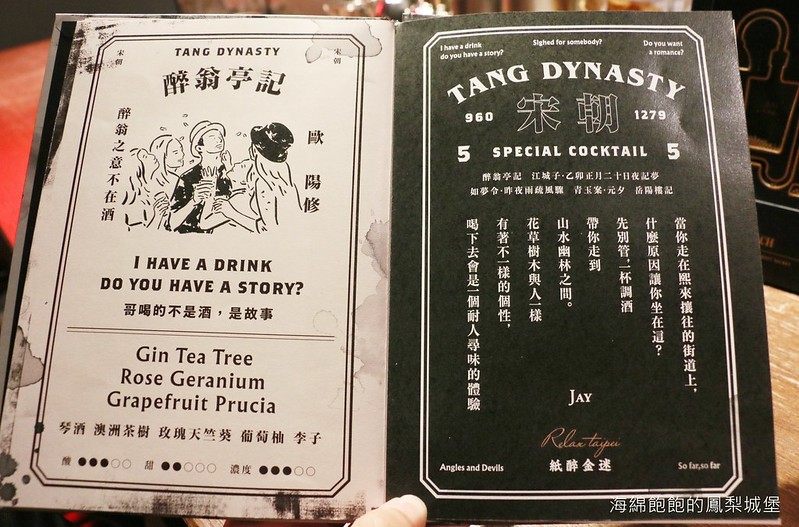 宋朝
TANG DYNASTY
宋朝
醉翁亭記
醉翁之意不在酒
歐陽修
I HAVE A DRINK
DO YOU HAVE A STORY?
哥喝的不是酒，是故事
Gin Tea Tree
Rose Geranium
Grapefruit Prucia
琴酒 澳洲茶樹 玫瑰天竺葵 葡萄柚 李子
酸 ●●●○○ 甜 ●●○○○ 濃度 ●●●○○
I have a drink
do you have a story?
Sighed for somebody?
Do you want
a romance?
TANG DYNASTY
960 宋朝 1279
5 SPECIAL COCKTAIL 5
醉翁亭記 江城子·乙卯正月二十日夜記夢
如夢令·昨夜雨疏風驟 青玉案·元夕 岳陽樓記
當你走在熙來攘往的街道上，
什麼原因讓你坐在這？
先別管，一杯調酒
帶你走到
山水幽林之間。
花草樹木與人一樣
有著不一樣的個性，
喝下去會是一個耐人尋味的體驗
JAY
Relax taipei
紙醉金迷
Angles and Devils
So far,so far
海綿飽飽的鳳梨城堡